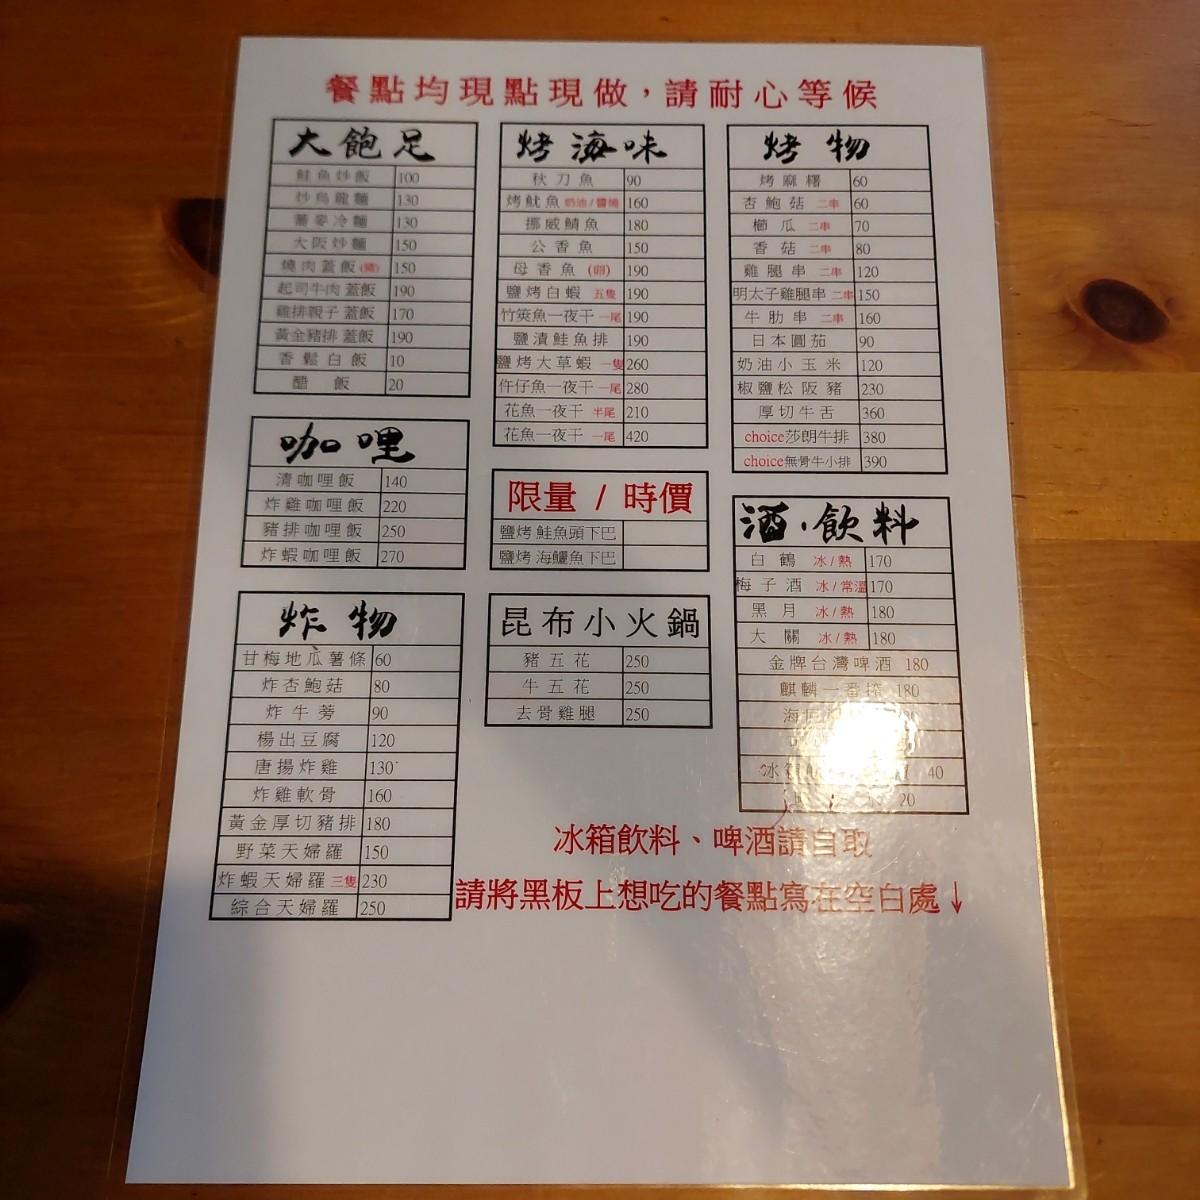 餐點均現點現做，請耐心等候
大飽足
鮭魚炒飯 100
炒烏龍麵 130
蕎麥冷麵 130
大阪炒麵 150
燒肉蓋飯(豬) 150
起司牛肉蓋飯 190
雞排親子蓋飯 170
黃金豬排蓋飯 190
香鬆白飯 10
醋飯 20
咖哩
清咖哩飯 140
炸雞咖哩飯 220
豬排咖哩飯 250
炸蝦咖哩飯 270
炸物
甘梅地瓜薯條 60
炸杏鮑菇 80
炸牛蒡 90
楊出豆腐 120
唐揚炸雞 130
炸雞軟骨 160
黃金厚切豬排 180
野菜天婦羅 150
炸蝦天婦羅 三隻 230
綜合天婦羅 250
烤海味
秋刀魚 90
烤魷魚 奶油/醬燒 160
挪威鯖魚 180
公香魚 150
母香魚 (卵) 190
鹽烤白蝦 五隻 190
竹筴魚一夜干 一尾 190
鹽漬鮭魚排 190
鹽烤大草蝦 一隻 260
仵仔魚一夜干 一尾 280
花魚一夜干 半尾 210
花魚一夜干 一尾 420
限量 / 時價
鹽烤 鮭魚頭下巴
鹽烤 海鱺魚下巴
昆布小火鍋
豬五花 250
牛五花 250
去骨雞腿 250
烤物
烤麻糬 60
杏鮑菇 二串 60
櫛瓜 二串 70
香菇 二串 80
雞腿串 二串 120
明太子雞腿串 二串 150
牛肋串 二串 160
日本圓茄 90
奶油小玉米 120
椒鹽松阪豬 230
厚切牛舌 360
choice莎朗牛排 380
choice無骨牛小排 390
酒．飲料
白鶴 冰/熱 170
梅子酒 冰/常溫 170
黑月 冰/熱 180
大關 冰/熱 180
金牌台灣啤酒 180
麒麟一番搾 180
海
冰箱 40
20
冰箱飲料、啤酒請自取
請將黑板上想吃的餐點寫在空白處↓